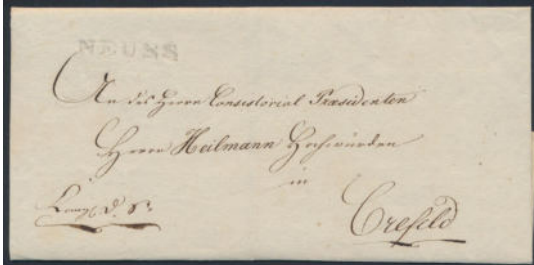 NEUSS
An des Herrn Consistorial Præsidenten
Herrn Heilmann Hochwürden
in
Crefeld